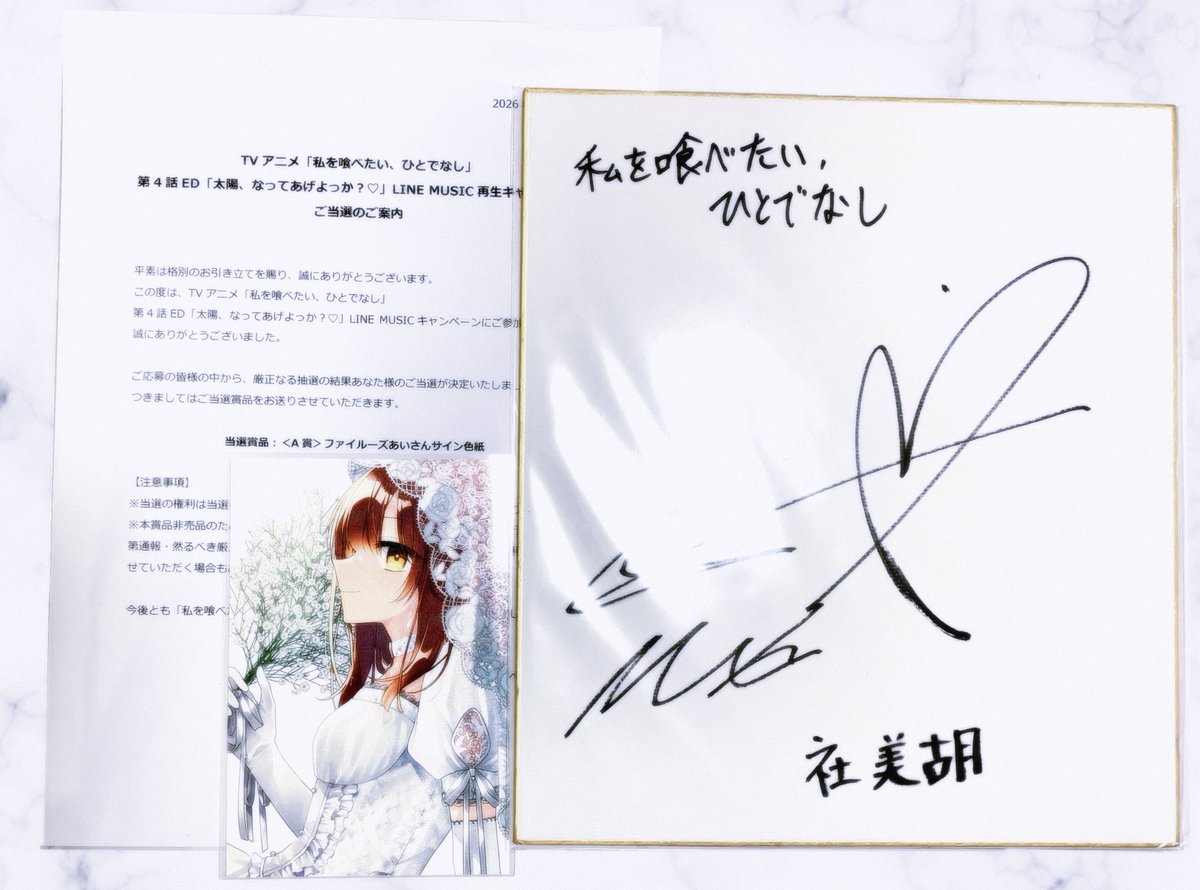 2026
TVアニメ「私を喰べたい、ひとでなし」
第4話ED「太陽、なってあげよっか？♡」LINE MUSIC再生キャ
ご当選のご案内
平素は格別のお引き立てを賜り、誠にありがとうございます。
この度は、TVアニメ「私を喰べたい、ひとでなし」
第4話ED「太陽、なってあげよっか？♡」LINE MUSICキャンペーンにご参加
誠にありがとうございました。
ご応募の皆様の中から、厳正なる抽選の結果あなた様のご当選が決定いたしまし
つきましてはご当選賞品をお送りさせていただきます。
当選賞品：＜A賞＞ファイルーズあいさんサイン色紙
【注意事項】
※当選の権利は当選
※本賞品非売品のた
第通報・然るべき厳
せていただく場合も
今後とも「私を喰べ
私を喰べたい、
ひとでなし
社美胡